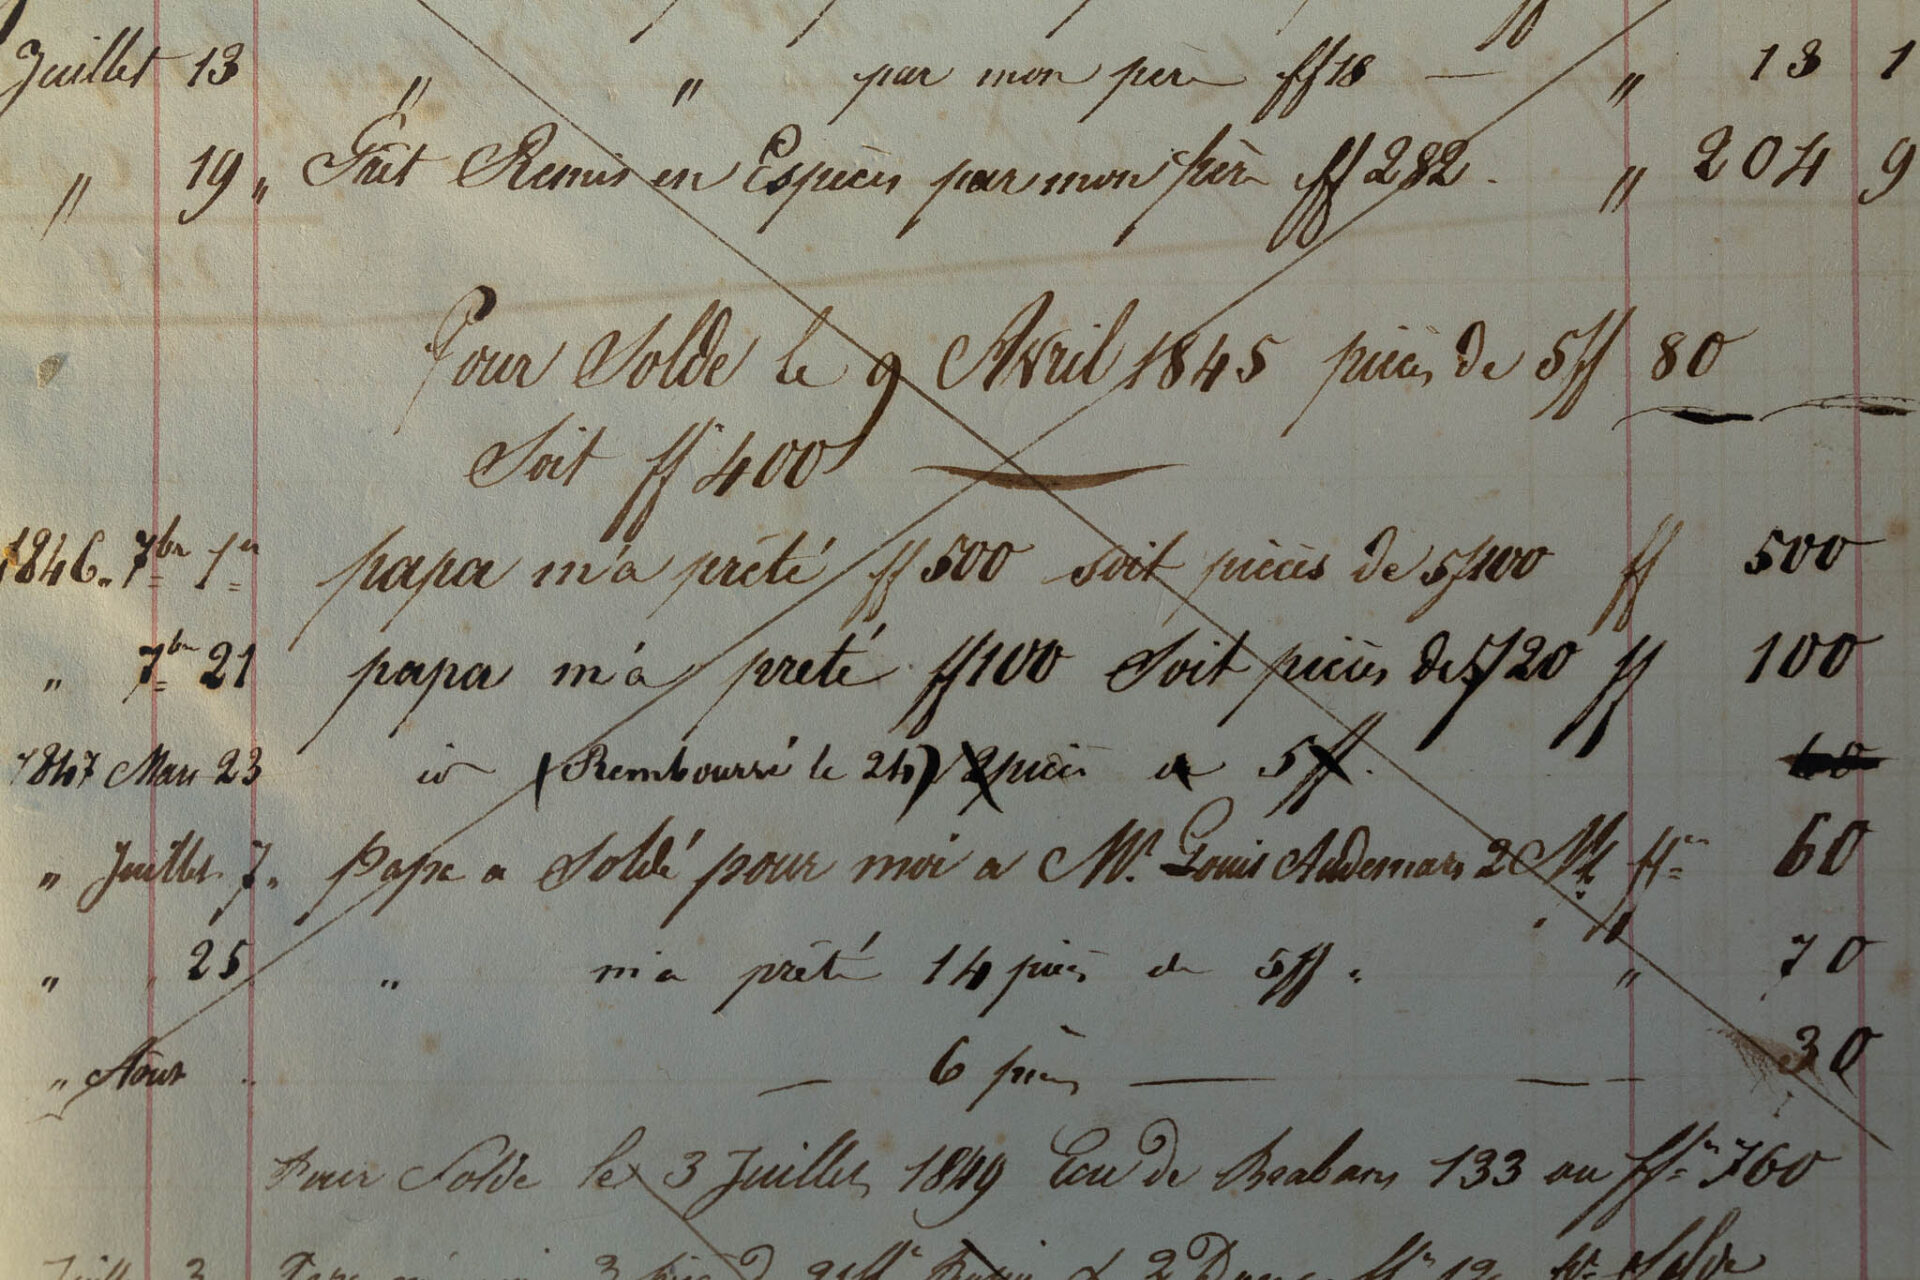 Juillet 13 " " par mon père ff 18 — " 13 1
" 19 " Fait Remis en Espèces par mon père ff 282. " 204 9
Pour Solde le 9 Avril 1845 pièces de 5ff 80
Soit ff 400
1846. 7bre 1er papa m'a prêté ff 500 soit pièces de 5f 100 ff 500
" 7bre 21 papa m'a preté ff 100 Soit pièces de 5f 20 ff 100
1847 Mars 23 (Remboursé le 24) 2 pièces de 5ff.
" Juillet 7. Papa a Soldé pour moi a Mr. Louis Audemars 2 ff 60
" " 25 " m'a prêté 14 pièces de 5ff. " 70
" Août — 6 pièces — — 30
Pour Solde le 3 Juillet 1849 Ecu de Brabans 133 ou ff 760
3